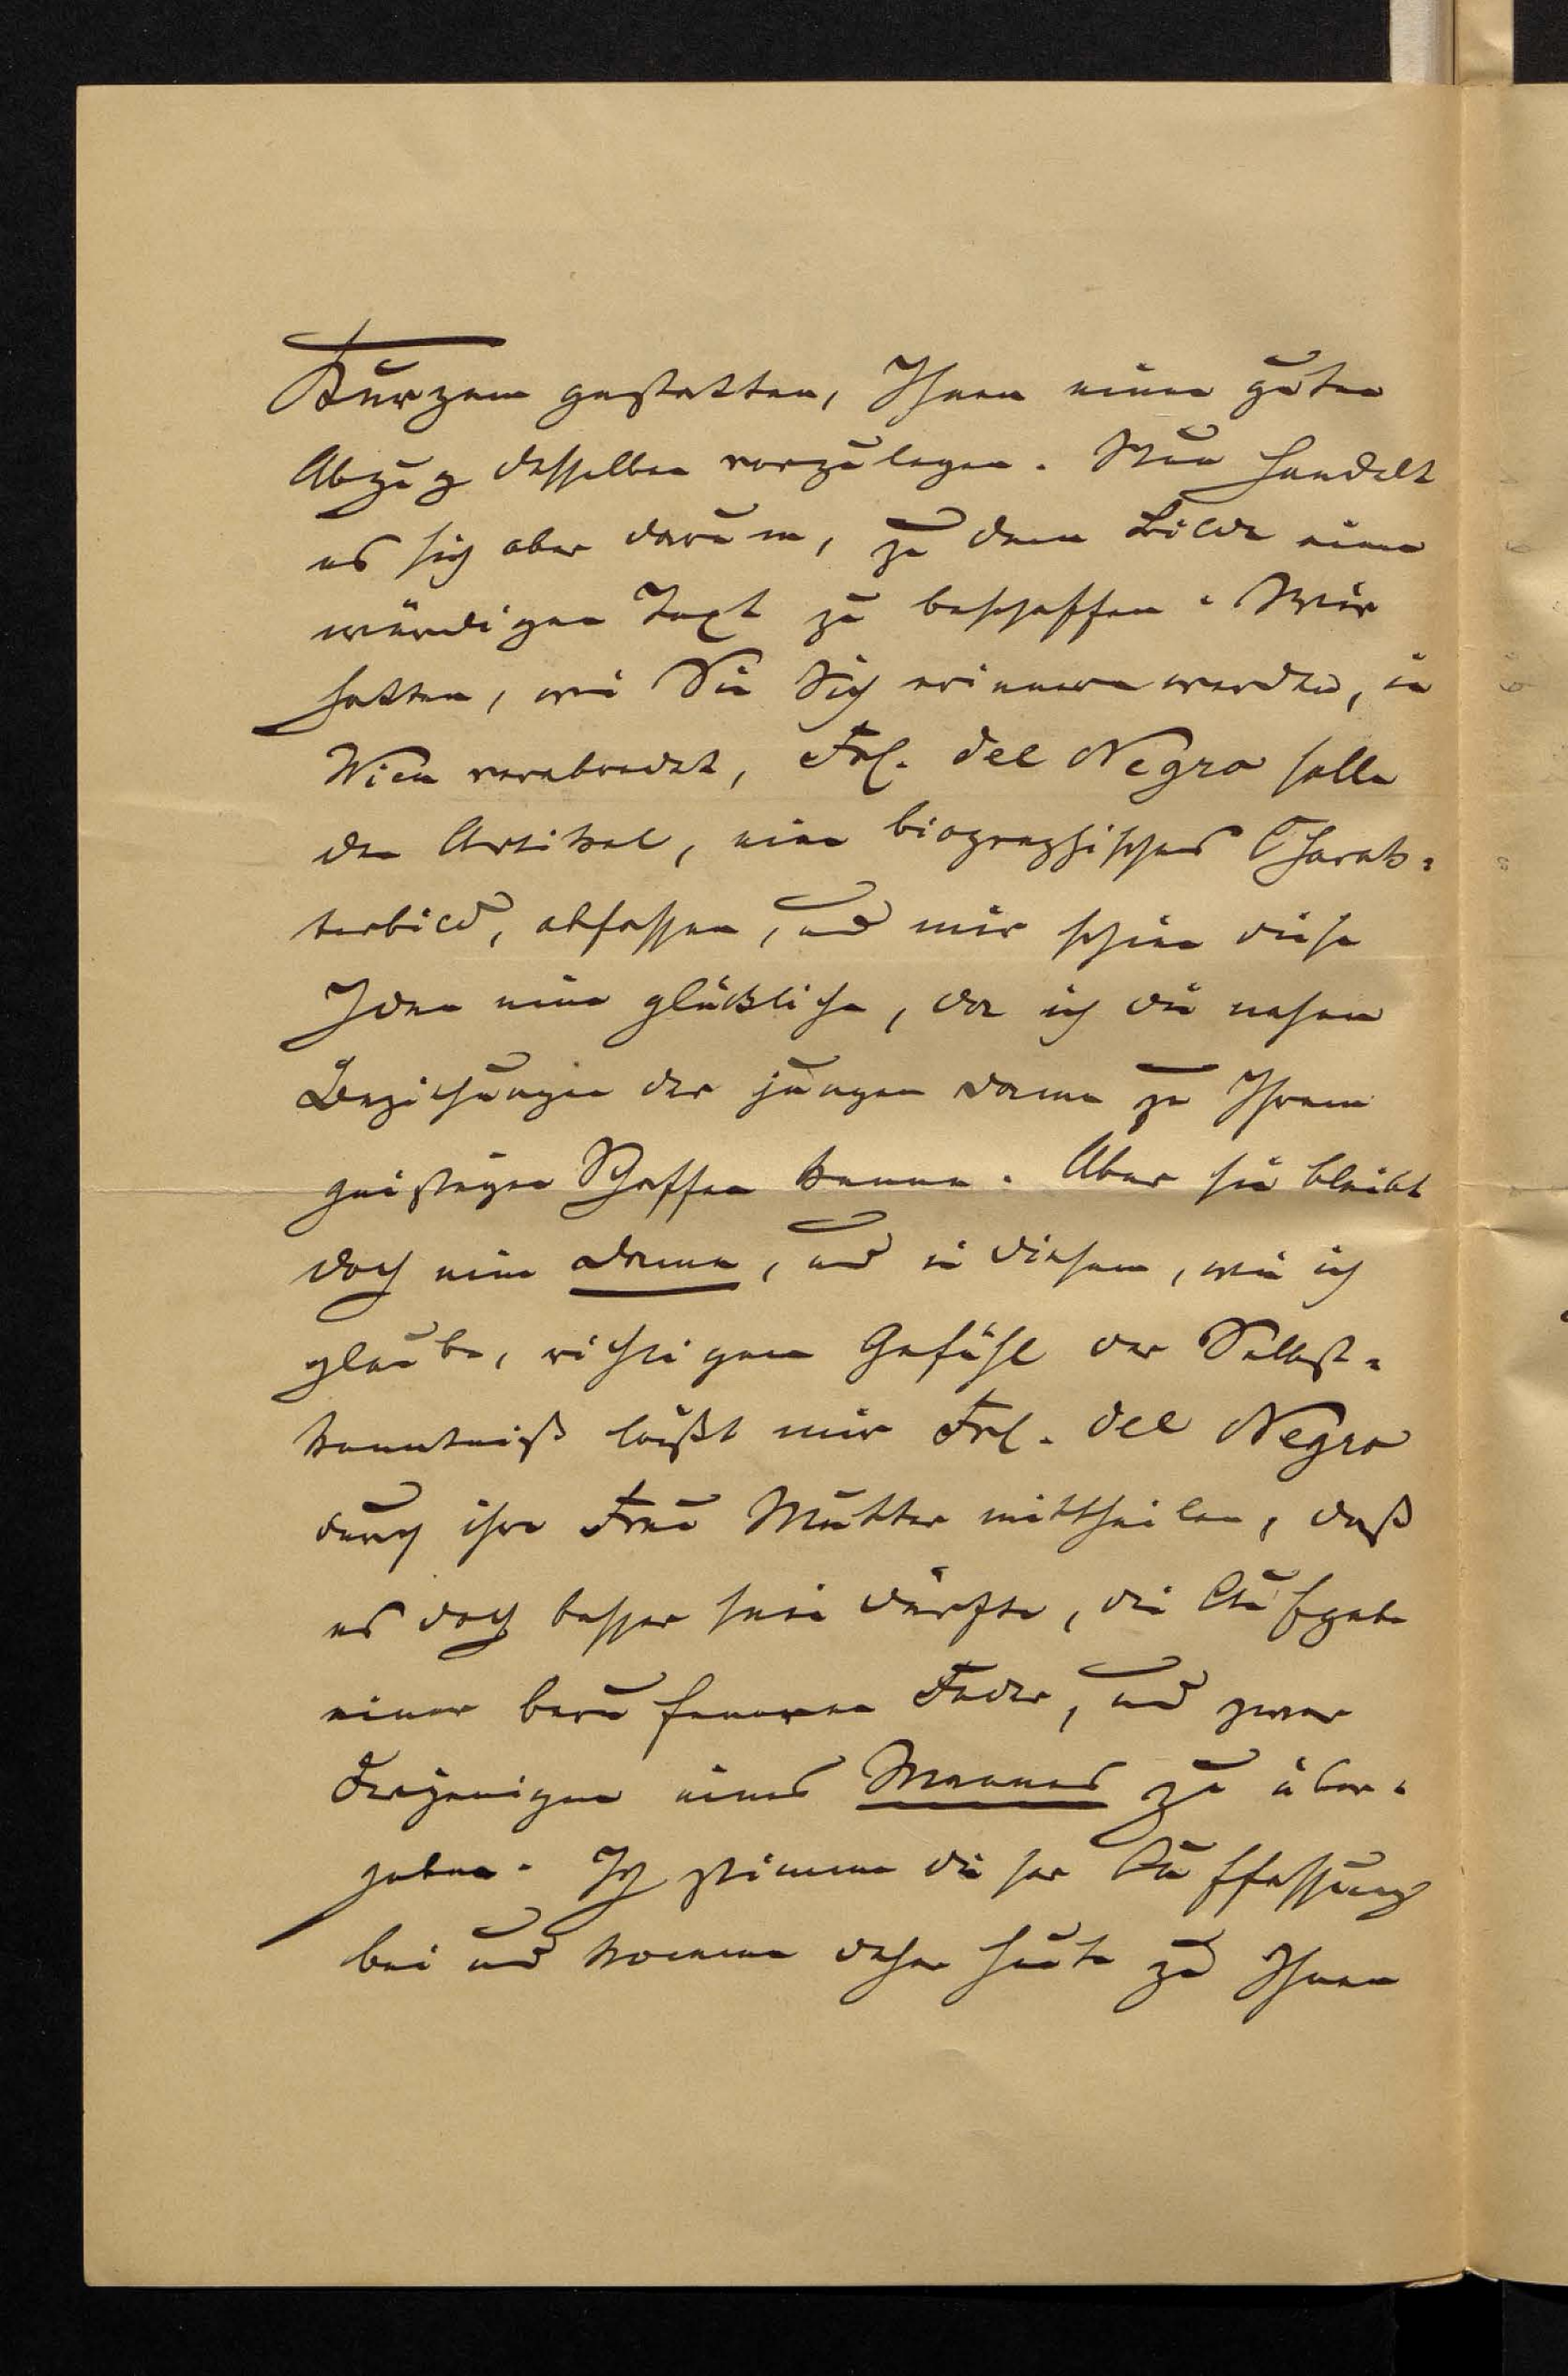 Kurzem gestatten, Ihnen einen guten
Abzug desselben vorzulegen. Nun handelt
es sich aber darum, zu dem Bilde einen
würdigen Text zu beschaffen. Wir
hatten, wie Sie Sich erinnern werden, in
Wien verabredet, Frl. del Negro solle
den Artikel, ein biographisches Charak-
terbild, abfassen, und mir schien diese
Idee eine glückliche, da ich die nahen
Beziehungen der jungen Dame zu Ihrem
geistigen Schaffen kenne. Aber sie bleibt
doch eine Dame, und in diesem, wie ich
glaube, richtigen Gefühl der Selbst-
kenntniß läßt mir Frl. del Negro
durch ihre Frau Mutter mittheilen, daß
es doch besser sein dürfte, die Aufgabe
einer berufeneren Feder, und zwar
derjenigen eines Mannes zu über-
geben. Ich stimme dieser Auffassung
bei und komme daher heute zu Ihnen